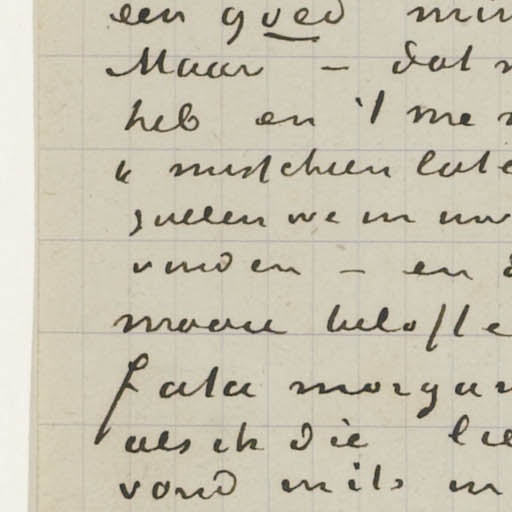 een goed
Maar – dat
heb en 't me
“ misschien late
zullen we in uw
vinden – en
mooie belofte
fata morgan
als ik die lie
vond iets in